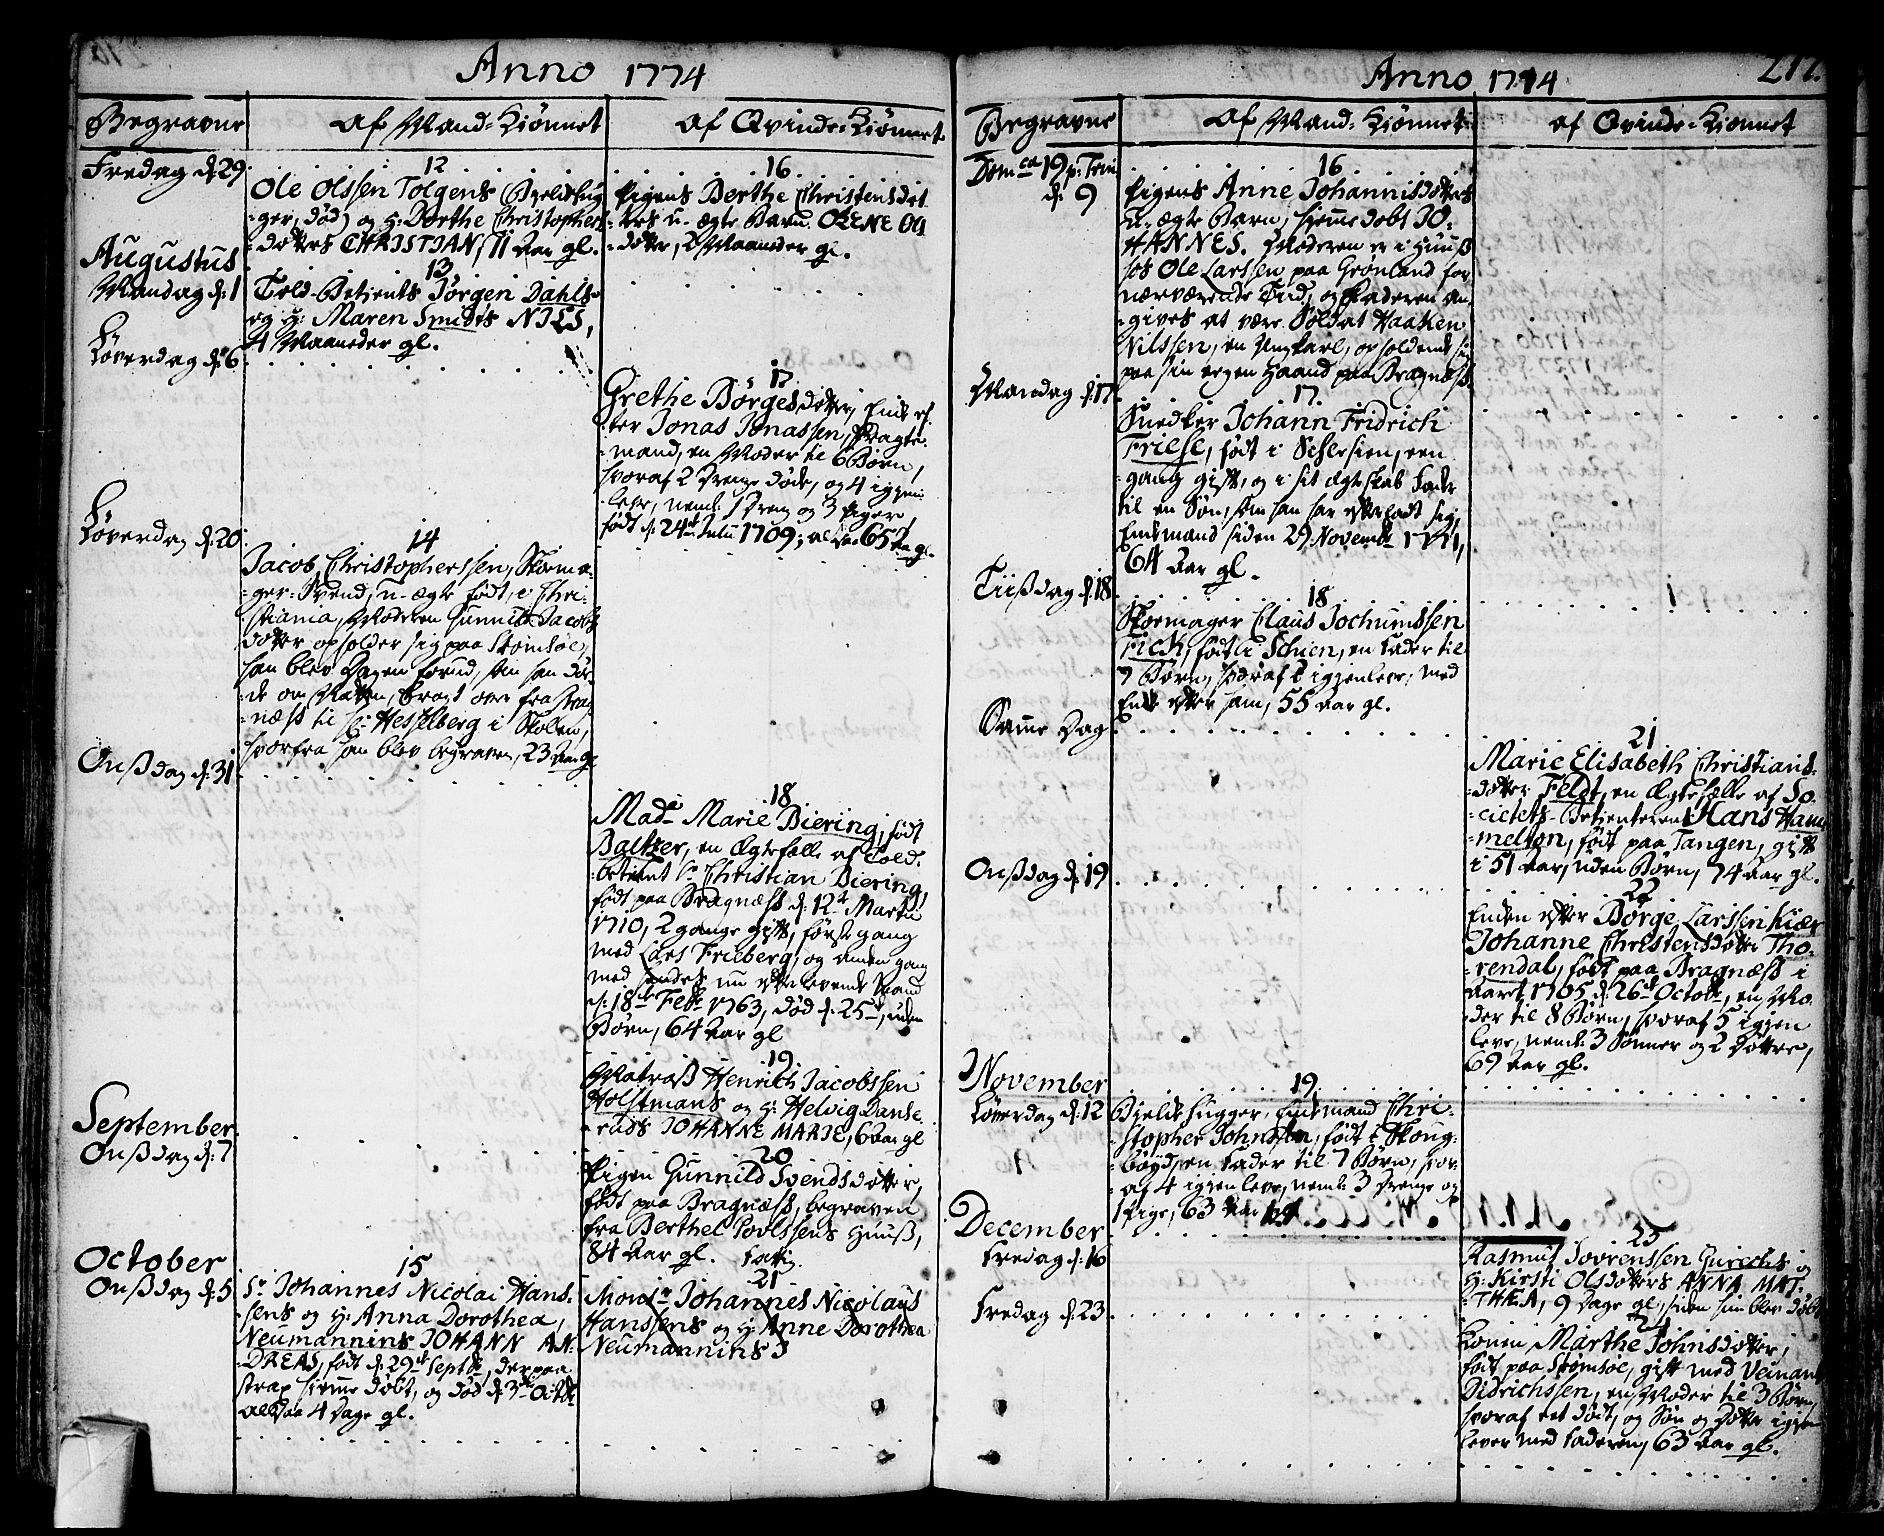 Anno 1774
Begravne
af Mand-Kiønnet
af Qvinde-Kiønnet
Fredag d: 29
12
Ole Olssen Tolgens (Bielkehug
-ger, død) og H: Dorthe Christophers
-døtters CHRISTIAN, 11 Aar gl.
16
Pigens Berthe Christensdøt
-ters u-ægte Barn OLENE
-dotter, 2 Maaneder gl.
Augustus
Mandag d: 1
13
Told-Betients Jørgen Dahls
og H: Maren Smidts NILS,
4 Maaneder gl.
Løverdag d: 6
17
Grethe Børgesdotter, Enke ef-
-ter Jonas Jonassen, Fragte-
-mand, en Moder til 6 Børn,
hvoraf 2 Drenge døde, og 4 igjen
leve, neml: 1 Dreng og 3 Piger
født d: 24de Julii 1709; 65 Aar gl.
Løverdag d: 20
14
Jacob Christopherssen, Skoema-
-ger-Svend, u-ægte født, i Chri-
stiania, Moderen Gunnild Jacobs
dotter opholder sig paa Strømsøe,
han blev Dagen forud, som han dø-
-de om Natten, bragt over fra Brag-
-næss til Hr: Hesselberg i Skolen,
hvorfra han blev begraven, 23 Aar gl
Onssdag d: 31
18
Made Marie Biering, født
Baltzer, en Ægtefælle af Told-
-betient Sr Christian Biering,
født paa Bragnæss d: 12te Martii
1710, 2 gange gift, første gang
med Lars Frieberg, og anden gang
med hendes nu efterlevende Mand
d: 18de Febr 1763, død d: 25de, uden
Børn, 64 Aar gl
19
Matross Henrich Jacobssen
Holstmans og H: Helvig Danse
-ruds JOHANNE MARIE, 6 Aar gl
September
Onssdag d: 7
20
Pigen Gunnild Svendsdotter,
født paa Bragnæss, begraven
fra Berthel Povlssens Huuss,
84 Aar gl.
October
Onssdag d: 5
15
Sr Johannes Nicolai Hans-
sens og H: Anna Dorothea
Neumannins JOHANN AN-
-DREAS, født d: 29de Septbr, derpaa
strax hiemme døbt, og død d: 3de Octbr
altsaa 4 Dage gl.
21
Monsr Johannes Nicolaus
Hanssens og H: Anne Dorothea
Neumannins
Anno 1774
217.
Begravne
af Mand-Kiønnet
af Qvinde-Kiønnet
Domca 19 p: Trin
d: 9
16
Pigens Anne Johannisdotters
u-ægte Barn, hiemme døbt JO-
HANNES. Moderen er i Huuss
hos Ole Larssen paa Grønland for
nærværende Tiid, og Faderen an-
-gives at være Soldat Haaken
Nilssen, en Ungkarl, opholdende sig
paa sin egen Haand paa Bragnæss.
Mandag d: 17
17.
Snedker Johann Fridrich
Friese, født i Schlesien, een
gang gift, og i sit Ægteskab Fader
til en Søn, som han har efterladt sig,
Enkemand siden 29 Novembr 1771,
64 Aar gl.
Tiissdag d: 18
18
Skoemager Claus Jochumssen
Fick, født i Schien, en Fader til
7 Børn, hvoraf 2 igjenleve, med
Enke efter ham, 55 Aar gl.
Samme Dag
21
Marie Elisabeth Christians-
-dotter Feldt, en Ægtefælle af So-
-cietets-Betienteren Hans Ham-
-melton, født paa Tangen, gift
i 51 Aar, uden Børn, 74 Aar gl.
Onssdag d: 19
22
Enken efter Børge Larssen Kiær
Johanne Christensdotter Tho-
-rendal, født paa Bragnæss i
Aaret 1705 d: 26de Octobr, en Mo-
der til 8 Børn, hvoraf 5 igjen
leve, neml: 3 Sønner og 2 Døttre,
69 Aar gl.
November
Løverdag d: 12
19.
Bielkehugger, Enkemand Chri-
-stopher Johnssen, født i Skoug-
-bøyd, en Fader til 7 Børn, hvor-
-af 4 igjenleve, neml: 3 Drenge og
1 Pige, 63 Aar gl
December
Fredag d: 16
23
Rasmus Sovrenssen Gurechs og
H: Kirsti Olsdotters ANNA MAT-
-THÆA, 9 Dage gl, siden hun blev døbt
Fredag d: 23
24
Konen Marthe Johnsdotter,
født paa Strømsøe, gift med Veinant
Didrichssen, en Moder til 3 Børn,
hvoraf eet dødt, og Søn og Dotter igjen
lever med Faderen, 63 Aar gl.